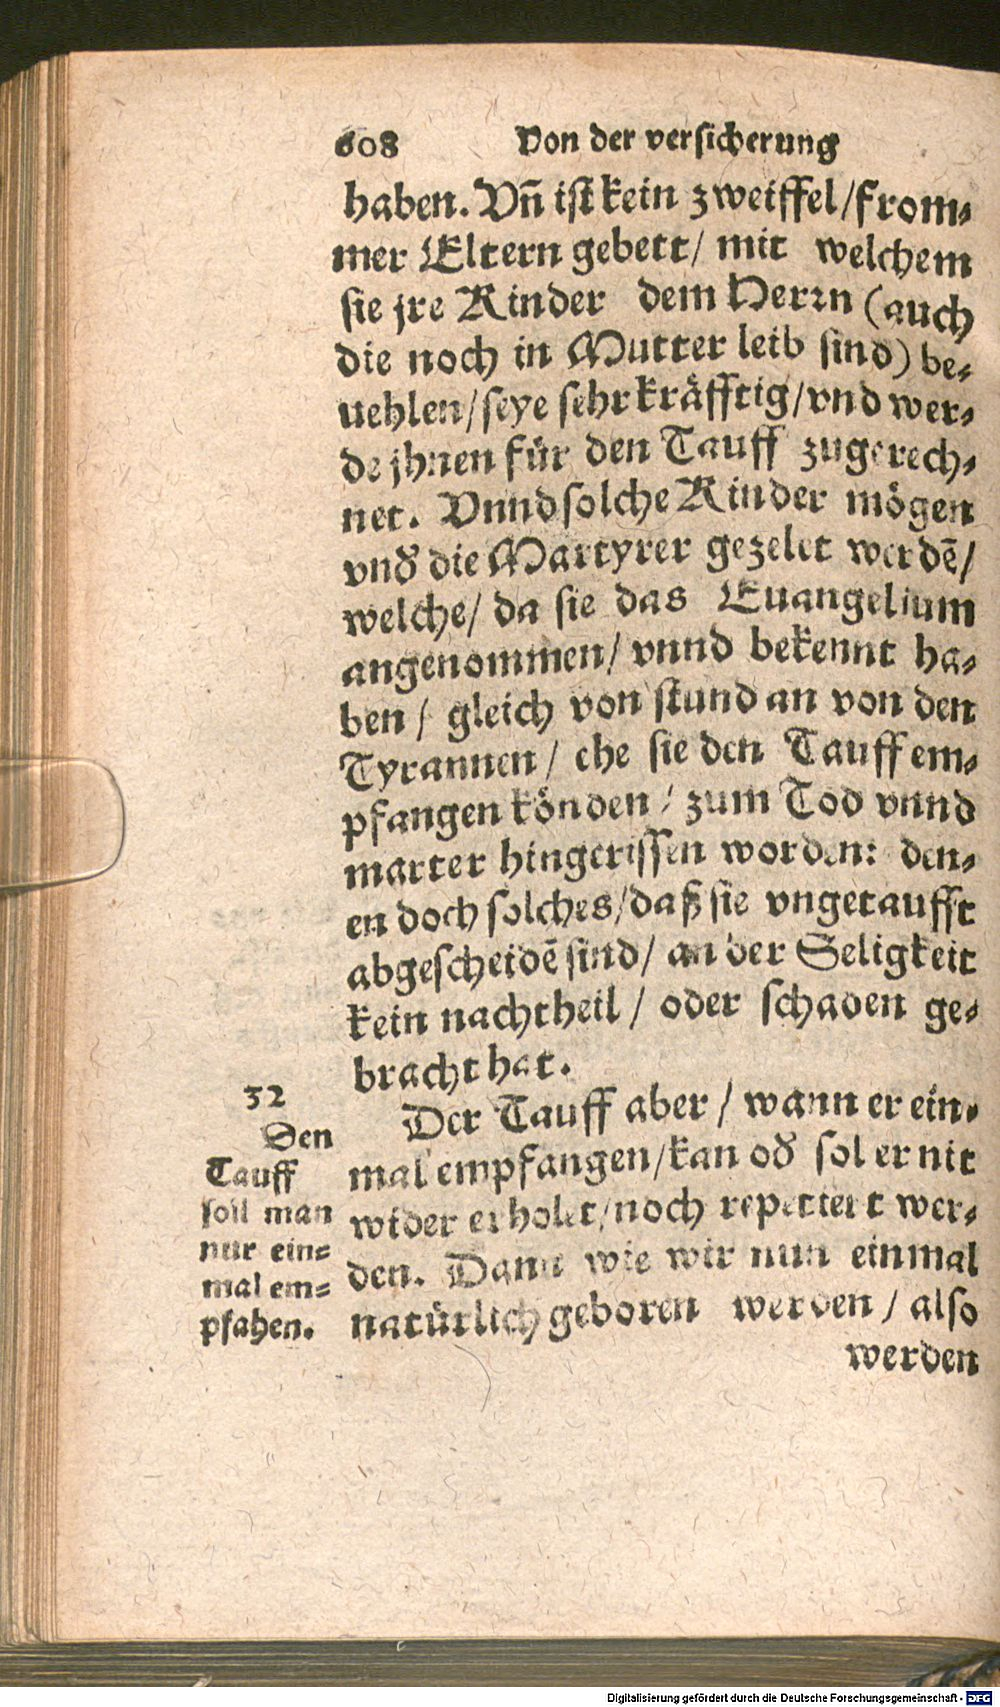 608 Von der versicherung
haben. Vñ ist kein zweiffel/from-
mer Eltern gebett/ mit welchem
sie jre Kinder dem Herrn (auch
die noch in Mutter leib sind) be-
uehlen/seye sehr kräfftig/vnd wer-
de jhnen für den Tauff zugerech-
net. Vnnd solche Kinder mögen
vnd̕ die Martyrer gezelet werdē/
welche/ da sie das Euangelium
angenommen/ vnnd bekennt ha-
ben/ gleich von stund an von den
Tyrannen/ ehe sie den Tauff em-
pfangen könden/ zum Tod vnnd
marter hingerissen worden: den-
en doch solches/daß sie vngetaufft
abgescheidē sind/ an der Seligkeit
kein nachtheil/ oder schaden ge-
bracht hat.
32
Den
Tauff
soll man
nur ein-
mal em-
pfahen.
Der Tauff aber/ wann er ein-
mal empfangen/kan od̕ sol er nit
wider erholet/noch repetiert wer-
den. Dann wie wir nun einmal
natürlich geboren werden/ also
werden
Digitalisierung gefördert durch die Deutsche Forschungsgemeinschaft - DFG